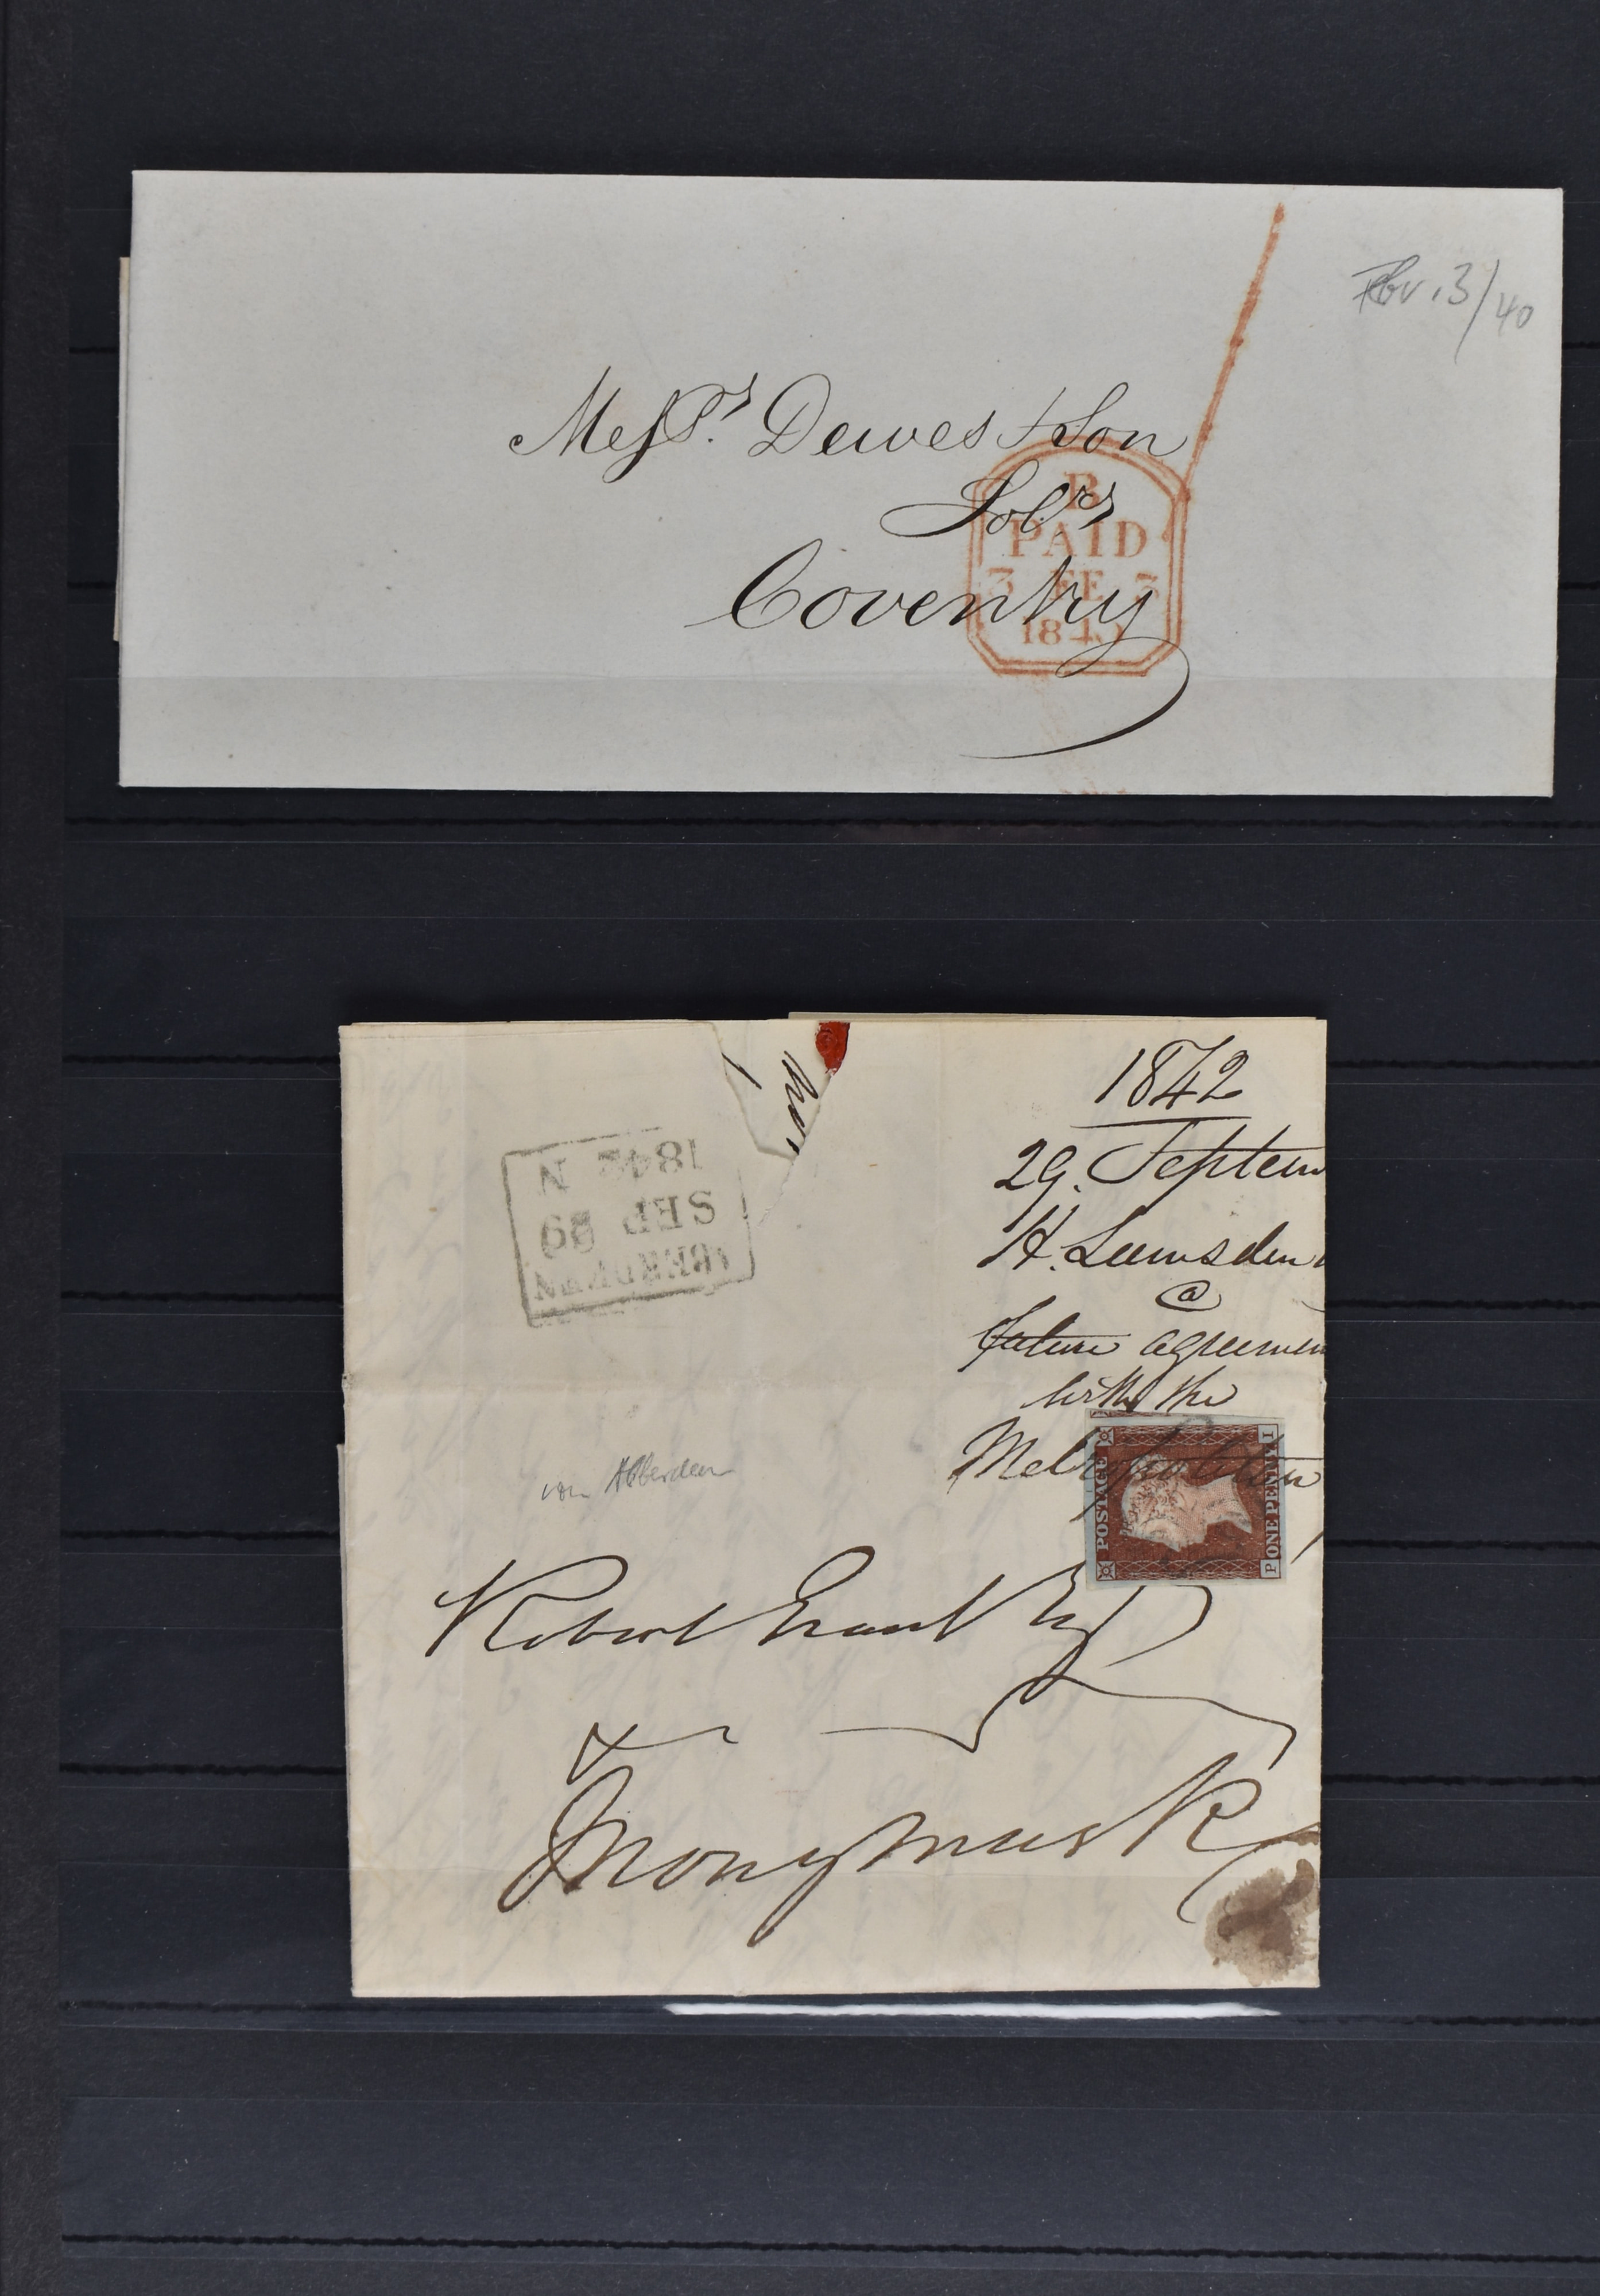 Febr. 3/40
Messrs. Dewes & Son
Solrs
Coventry
B
PAID
3 FE 3
1840
1842
29. Septem
H. Lumsden
@
future agreemen
with the
Metropolitan
1842 N
SEP 29
ABERDEEN
von Abberdeen
POSTAGE
ONE PENNY
P I
Robert Grant Esq
Monymusk